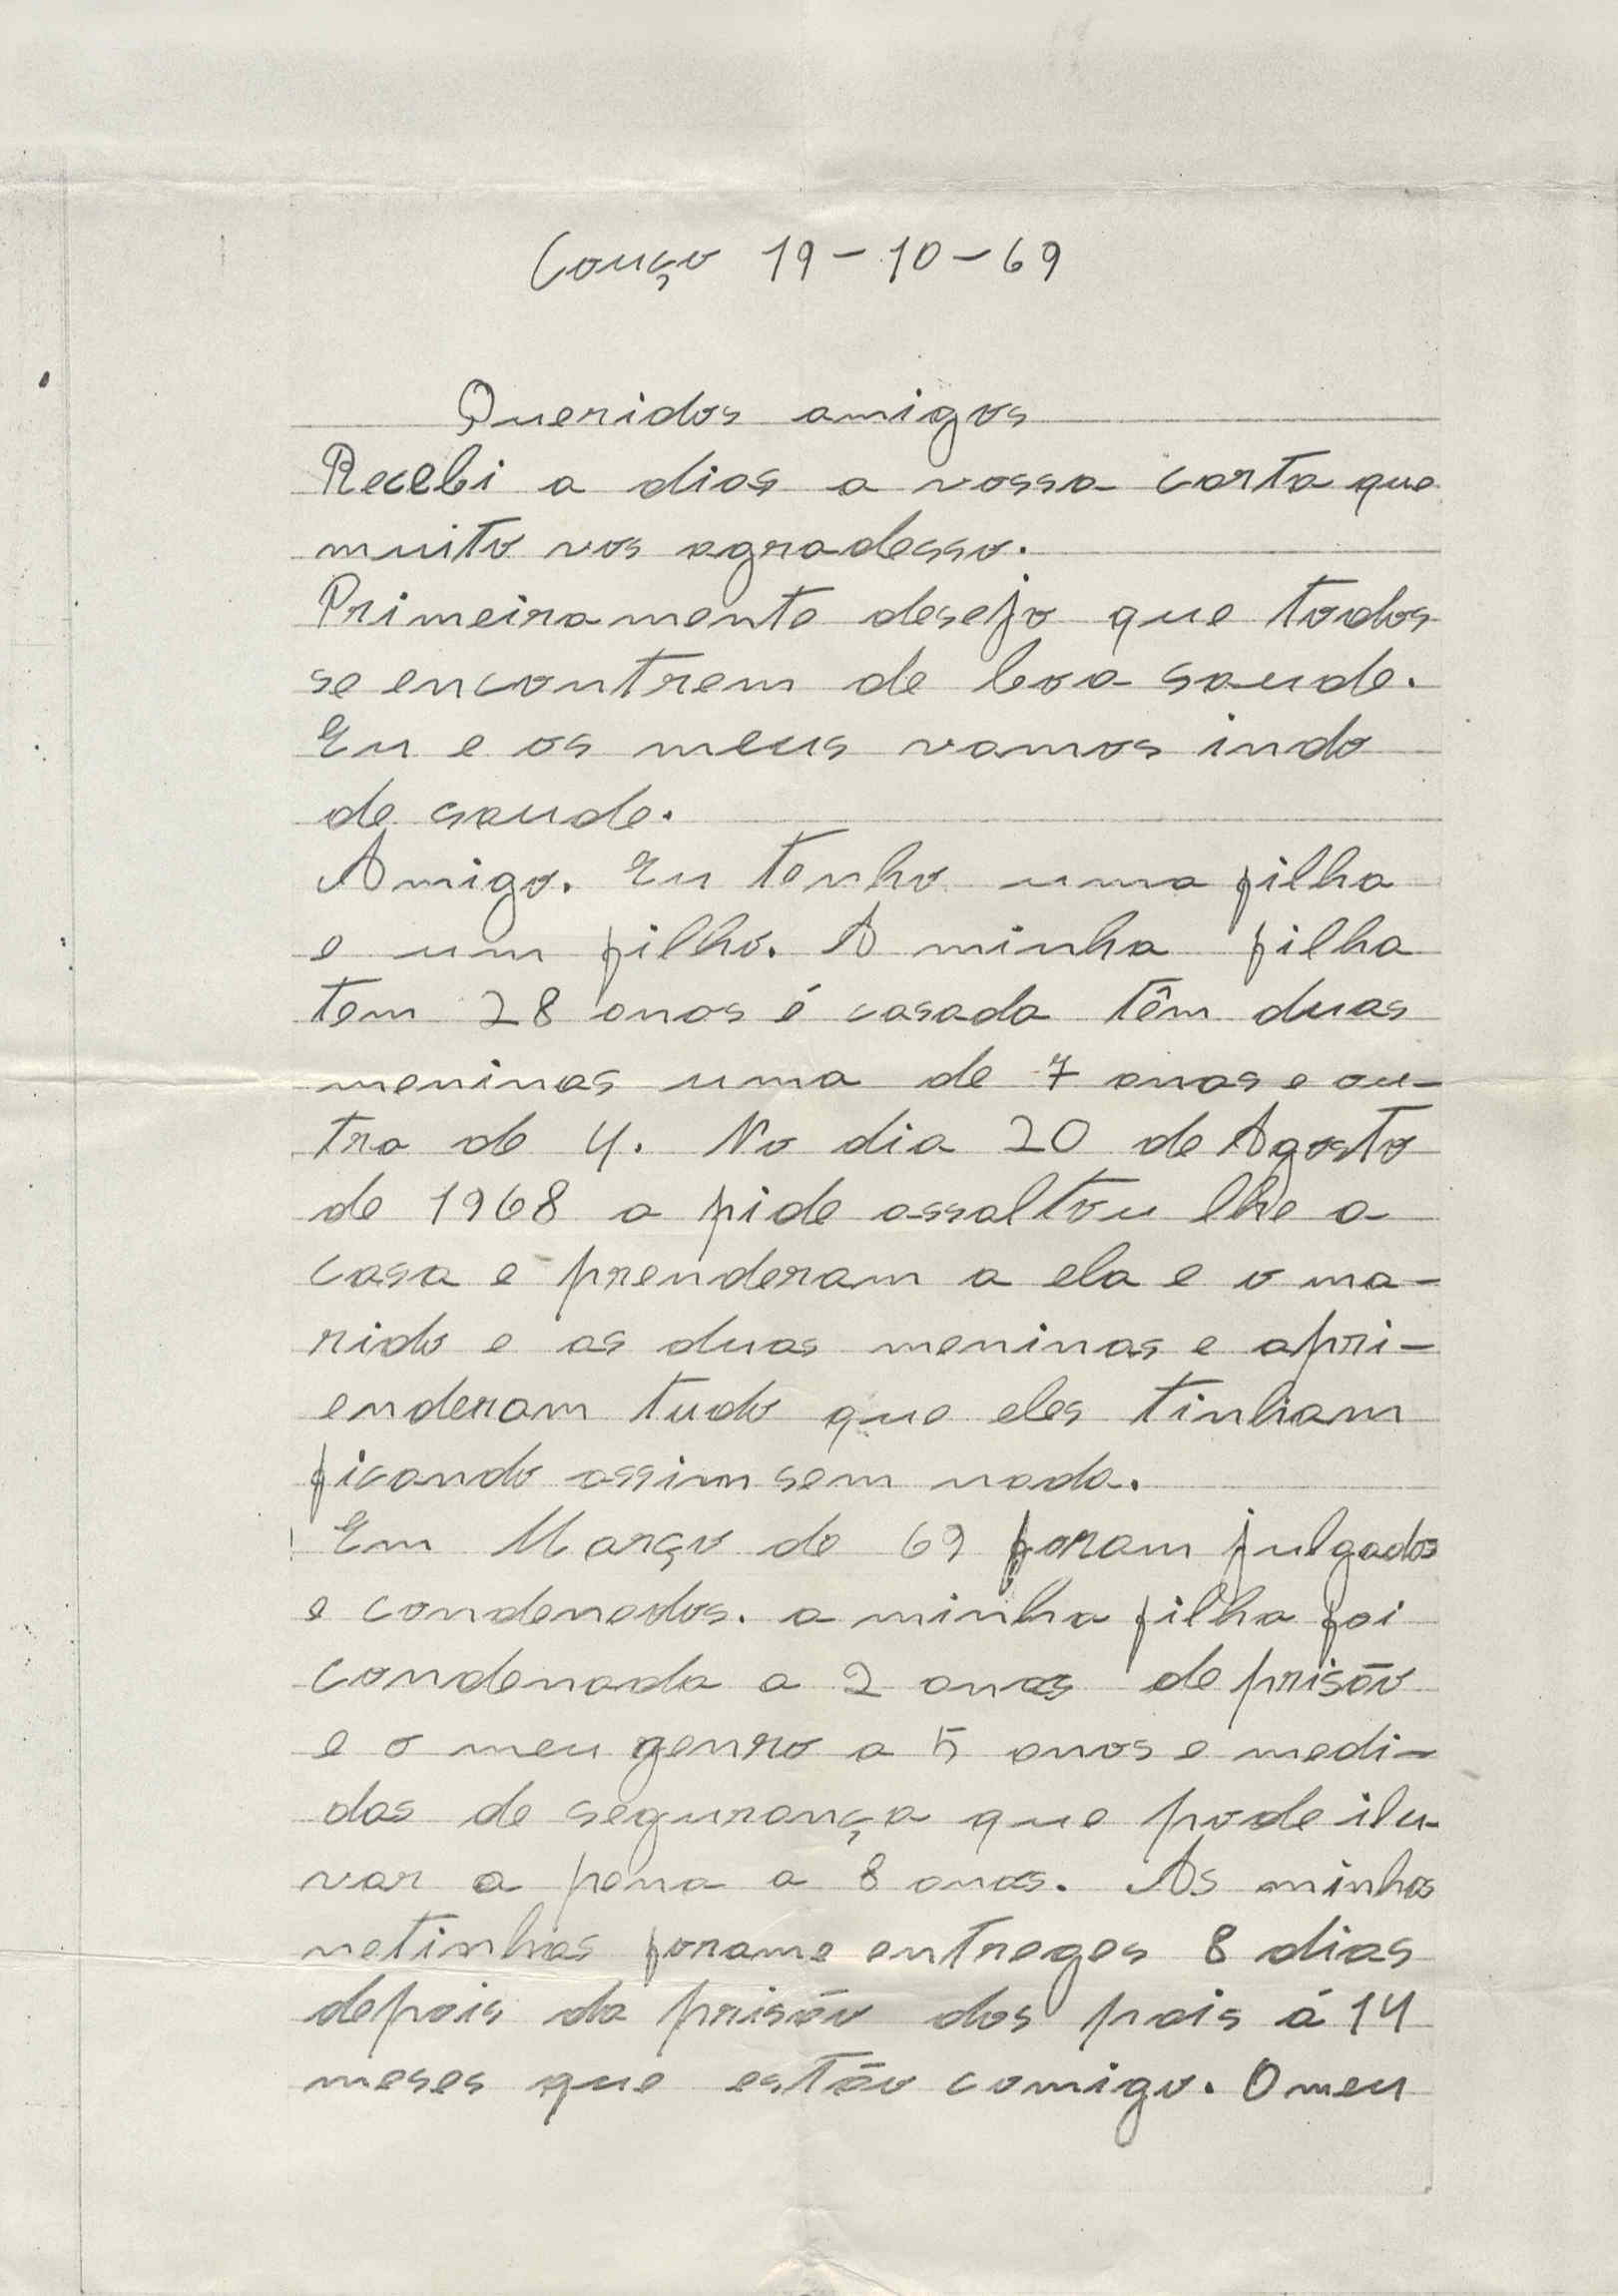 Couço 19-10-69
Queridos amigos
Recebi a dias a vossa carta que
muito vos agradesso.
Primeiramente desejo que todos
se encontrem de boa saude.
Eu e os meus vamos indo
de saude.
Amigo. Eu tenho uma filha
e um filho. A minha filha
tem 28 anos é casada têm duas
meninas uma de 7 anos e ou-
tra de 4. No dia 20 de Agosto
de 1968 a pide assaltou lhe a
casa e prenderam a ela e o ma-
rido e as duas meninas e apri-
enderam tudo que eles tinham
ficando assim sem nada.
Em Março de 69 foram julgados
e condenados. a minha filha foi
condenada a 2 anos de prisão
e o meu genro a 5 anos e medi-
das de segurança que pode ilu-
var a pena a 8 anos. As minhas
netinhas forame entreges 8 dias
depois da prisão dos pais á 14
meses que estão comigo. O meu